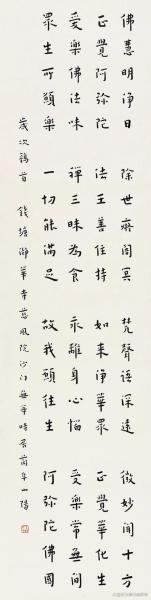 佛慧明淨日 除世癡闇冥 梵聲語深遠 微妙聞十方
正覺阿彌陀 法王善住持 如來淨華眾 正覺華化生
愛樂佛法味 禪三昧為食 永離身心惱 受樂常無間
眾生所願樂 一切能滿足 故我願往生 阿彌陀佛國
歲次鶉首 錢塘 華寺慈風院沙門 時居 山陽